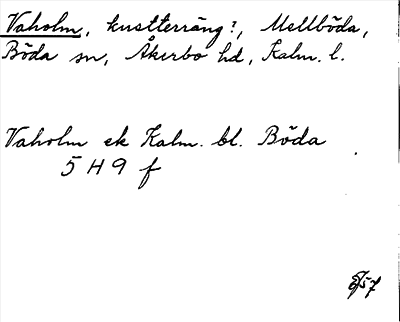 Vaholm, kustterräng?, Mellböda,
Böda sn, Åkerbo hd, Kalm. l.
Vaholm ek Kalm. bl. Böda
5 H 9 f
57